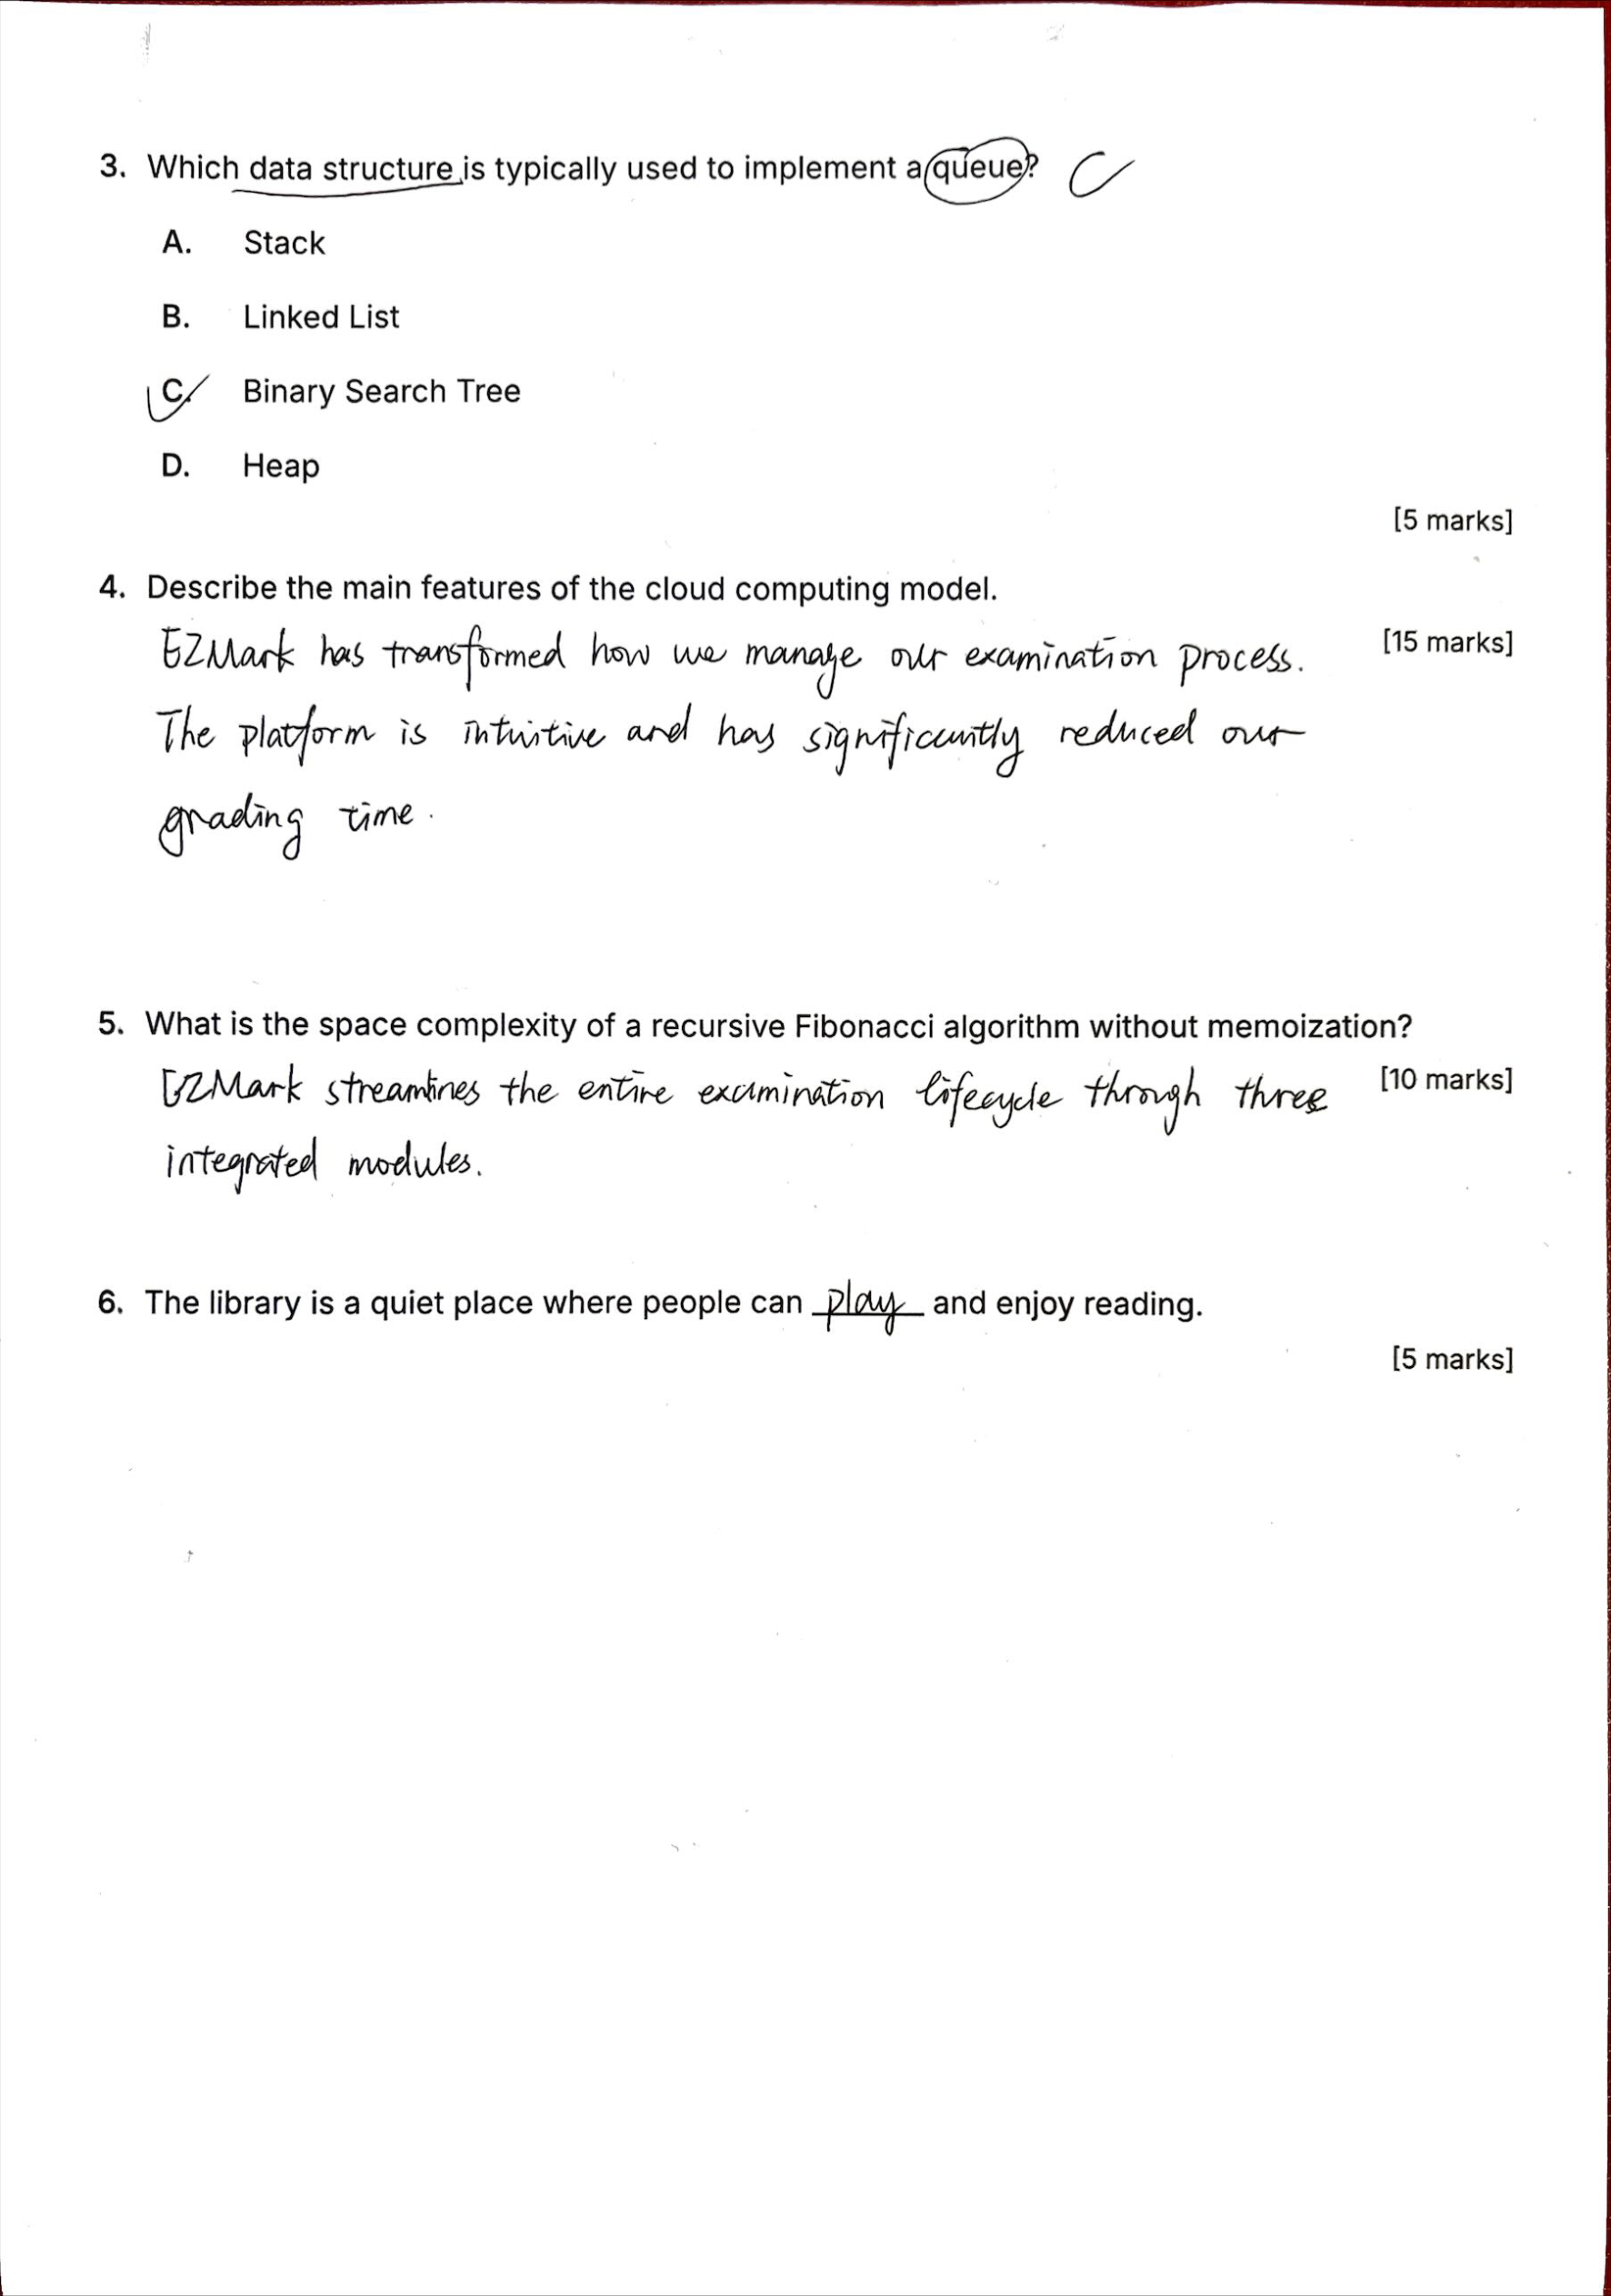 3. Which data structure is typically used to implement a queue? C
A. Stack
B. Linked List
C. Binary Search Tree
D. Heap
[5 marks]
4. Describe the main features of the cloud computing model.
[15 marks]
EZMark has transformed how we manage our examination process.
The platform is intuitive and has significantly reduced our
grading time.
5. What is the space complexity of a recursive Fibonacci algorithm without memoization?
[10 marks]
EZMark streamlines the entire examination lifecycle through three
integrated modules.
6. The library is a quiet place where people can play and enjoy reading.
[5 marks]